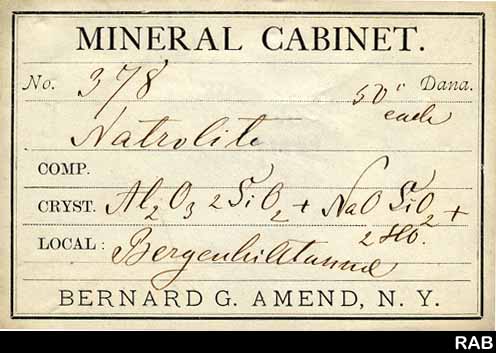 MINERAL CABINET.
No. 378 50¢ Dana.
each
Natrolite
COMP.
CRYST. Al₂O₃ 2SiO₂ + NaO SiO₂ +
2HO.
LOCAL: Bergenhilltunnel
BERNARD G. AMEND, N. Y.
RAB